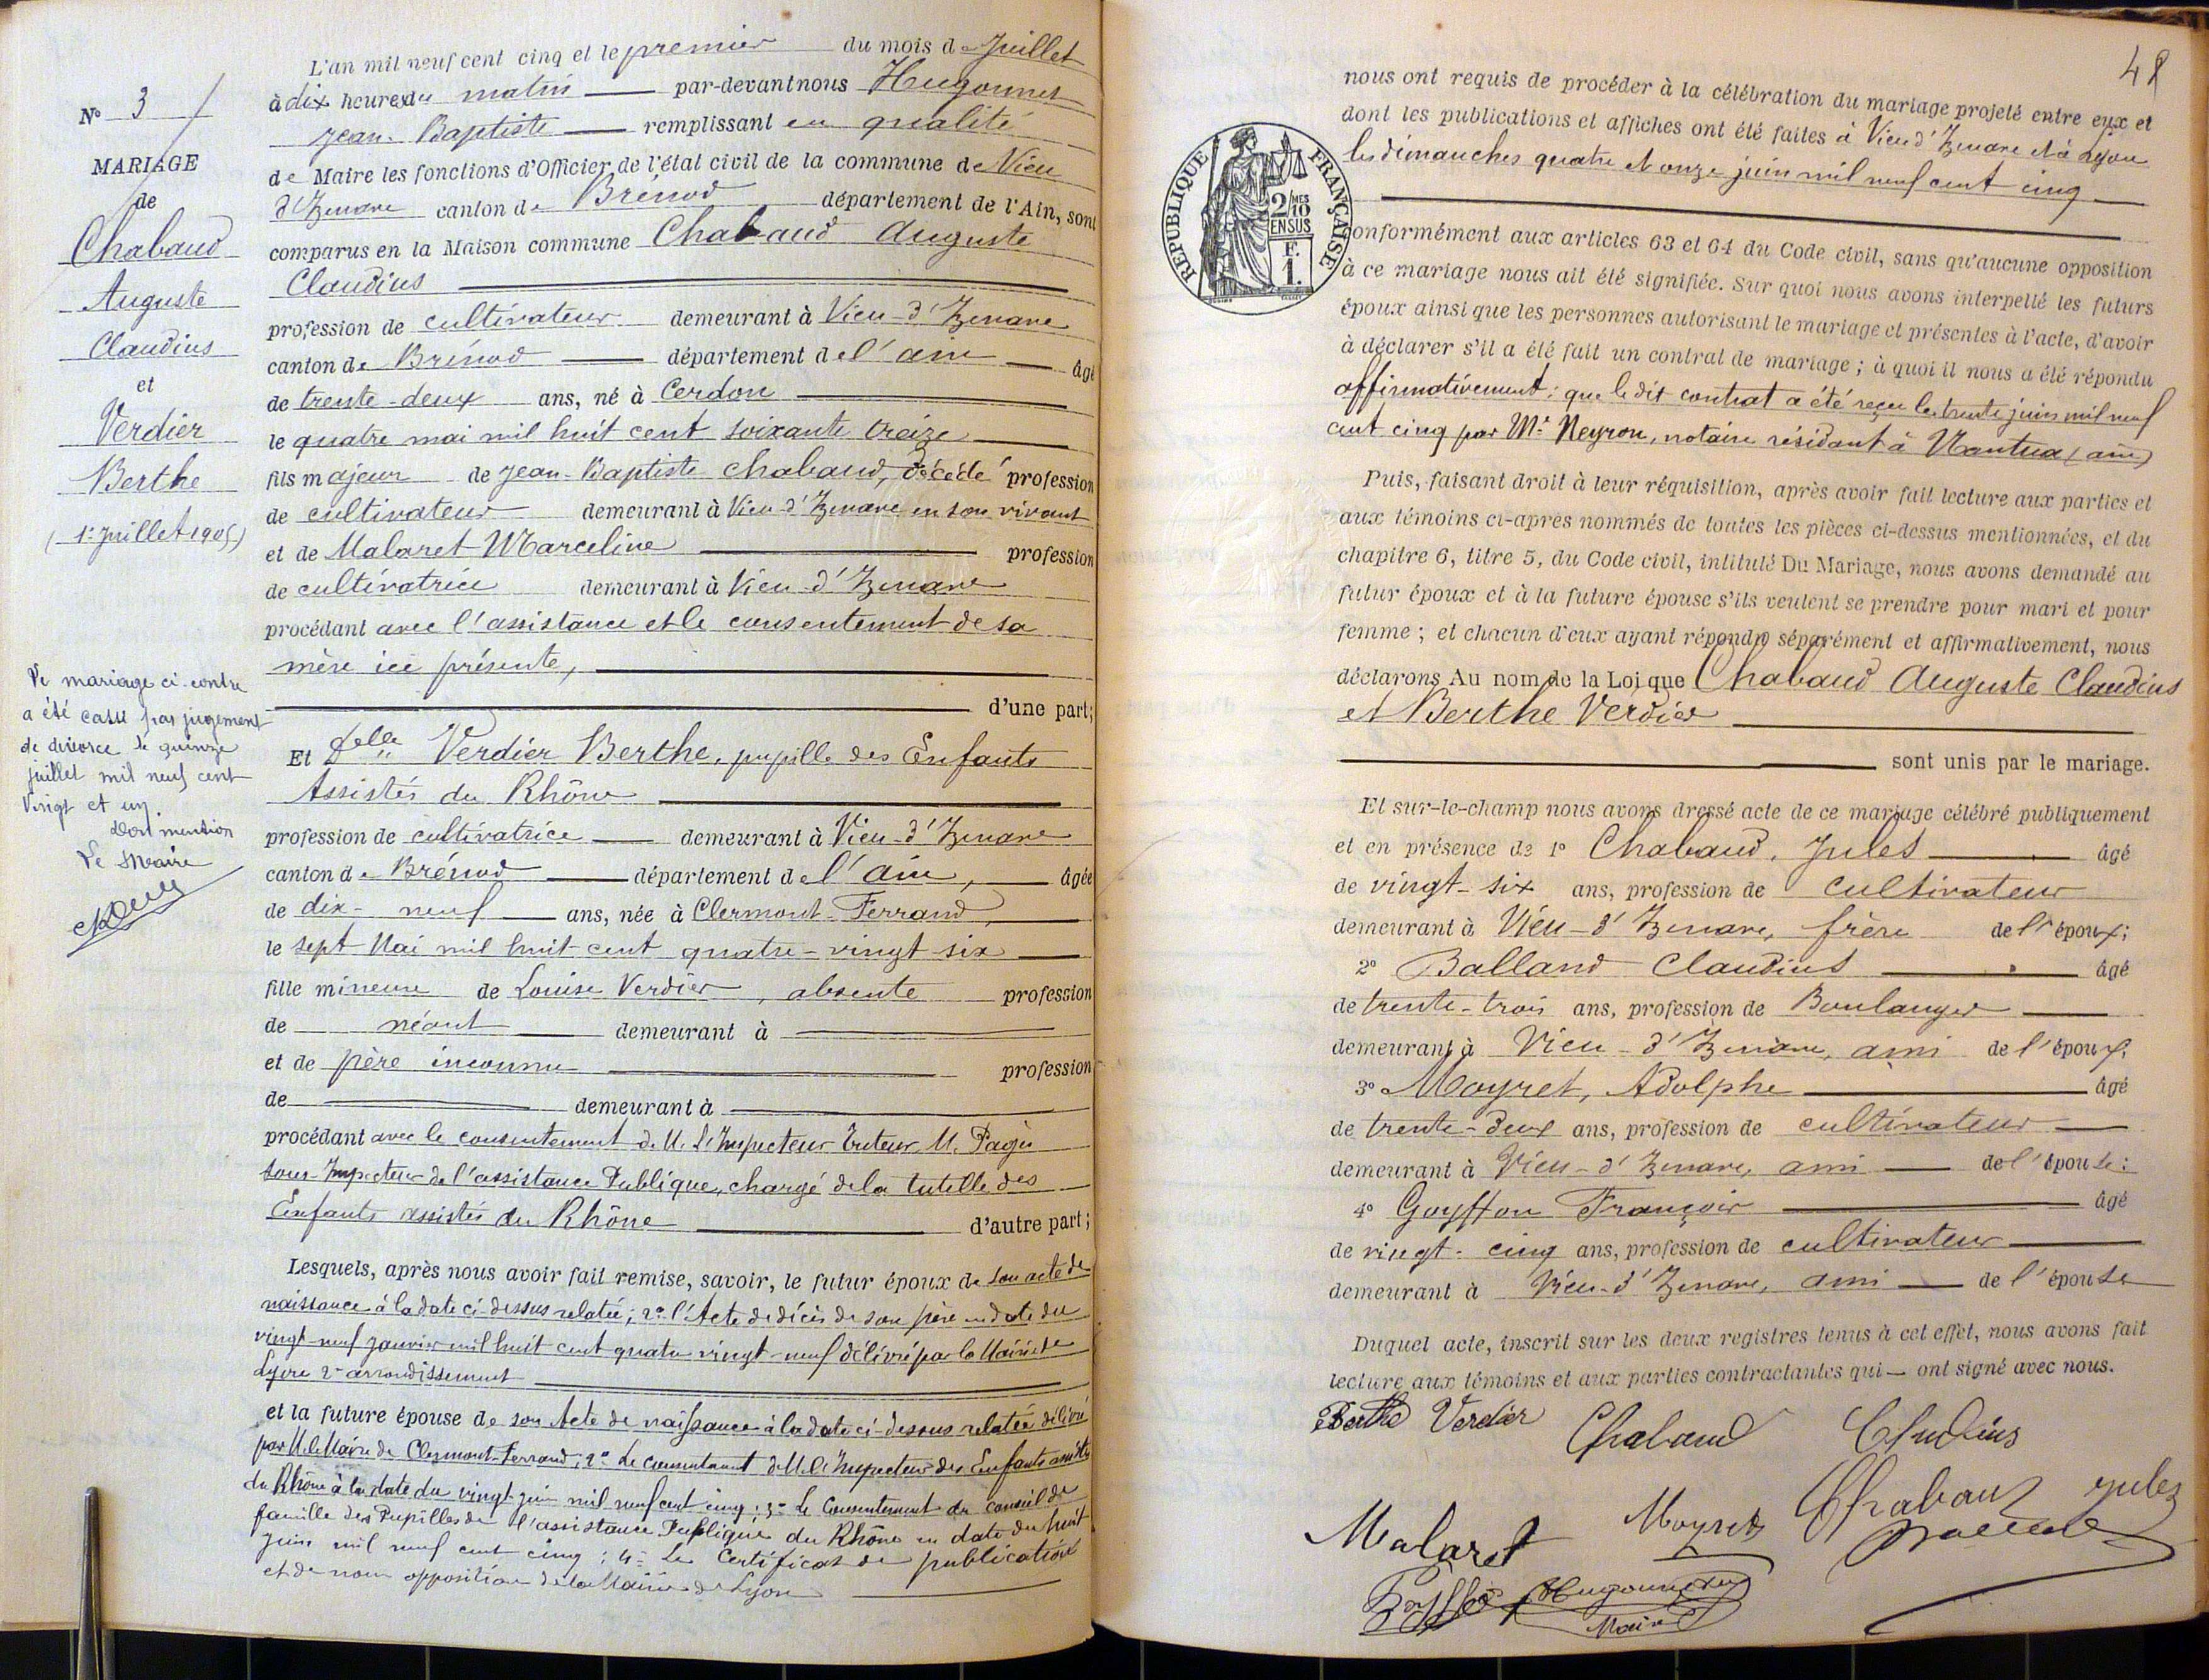 N° 3
MARIAGE
de
Chabaud
Auguste
Claudius
et
Verdier
Berthe
(1er Juillet 1905)
Le mariage ci-contre
a été cassé par jugement
de divorce le quinze
juillet mil neuf cent
vingt et un.
Dont mention
Le Maire
L'an mil neuf cent cinq et le premier du mois de Juillet
à dix heures du matin par-devant nous Hugonnet
Jean-Baptiste remplissant en qualité
de Maire les fonctions d'Officier de l'état civil de la commune de Vieu
d'Izenave canton de Brénod département de l'Ain, sont
comparus en la Maison commune Chabaud Auguste
Claudius
profession de cultivateur demeurant à Vieu-d'Izenave
canton de Brénod département de l'ain âgé
de trente-deux ans, né à Cerdon
le quatre mai mil huit cent soixante treize
fils majeur de Jean-Baptiste Chabaud, décédé profession
de cultivateur demeurant à Vieu-d'Izenave en son vivant
et de Malaret Marceline profession
de cultivatrice demeurant à Vieu-d'Izenave
procédant avec l'assistance et le consentement de sa
mère ici présente,
d'une part;
Et Delle Verdier Berthe, pupille des Enfants
Assistés du Rhône
profession de cultivatrice demeurant à Vieu-d'Izenave
canton de Brénod département de l'Ain, âgée
de dix-neuf ans, née à Clermont-Ferrand,
le sept Mai mil huit cent quatre-vingt six
fille mineure de Louise Verdier, absente profession
de néant demeurant à
et de père inconnu profession
de demeurant à
procédant avec le consentement de M. l'Inspecteur Tuteur M. Pagès
sous-Inspecteur de l'assistance Publique, chargé de la tutelle des
Enfants assistés du Rhône d'autre part;
Lesquels, après nous avoir fait remise, savoir, le futur époux de son acte de
naissance à la date ci-dessus relatée; 2° l'Acte de décès de son père en date du
vingt-neuf janvier mil huit cent quatre vingt-neuf délivré par la Mairie de
Lyon 2e arrondissement
et la future épouse de son Acte de naissance à la date ci-dessus relatée délivré
par M. le Maire de Clermont-Ferrand; 2° Le consentement de M. l'Inspecteur des Enfants assistés
du Rhône à la date du vingt juin mil neuf cent cinq; 3° Le Consentement du conseil de
famille des Pupilles de l'assistance Publique du Rhône en date du huit
juin mil neuf cent cinq; 4° Le Certificat de publication
et de non opposition de la Mairie de Lyon
48
nous ont requis de procéder à la célébration du mariage projeté entre eux et
dont les publications et affiches ont été faites à Vieu d'Izenave et à Lyon
les dimanches quatre et onze juin mil neuf cent cinq
RÉPUBLIQUE FRANÇAISE
2/10 MES
EN SUS
F.
1.
conformément aux articles 63 et 64 du Code civil, sans qu'aucune opposition
à ce mariage nous ait été signifiée. Sur quoi nous avons interpellé les futurs
époux ainsi que les personnes autorisant le mariage et présentes à l'acte, d'avoir
à déclarer s'il a été fait un contrat de mariage; à quoi il nous a été répondu
affirmativement: que le dit contrat a été reçu le trente juin mil neuf
cent cinq par Me Neyron, notaire résidant à Nantua (ain)
Puis, faisant droit à leur réquisition, après avoir fait lecture aux parties et
aux témoins ci-après nommés de toutes les pièces ci-dessus mentionnées, et du
chapitre 6, titre 5, du Code civil, intitulé Du Mariage, nous avons demandé au
futur époux et à la future épouse s'ils veulent se prendre pour mari et pour
femme; et chacun d'eux ayant répondu séparément et affirmativement, nous
déclarons Au nom de la Loi que Chabaud Auguste Claudius
et Berthe Verdier
sont unis par le mariage.
Et sur-le-champ nous avons dressé acte de ce mariage célébré publiquement
et en présence de 1° Chabaud, Jules âgé
de vingt-six ans, profession de cultivateur
demeurant à Vieu-d'Izenave, frère de l'époux;
2° Balland Claudius âgé
de trente-trois ans, profession de Boulanger
demeurant à Vieu-d'Izenave, ami de l'époux;
3° Moyret, Adolphe âgé
de trente-deux ans, profession de cultivateur
demeurant à Vieu-d'Izenave, ami de l'épouse;
4° Goyffon François âgé
de vingt-cinq ans, profession de cultivateur
demeurant à Vieu-d'Izenave, ami de l'épouse
Duquel acte, inscrit sur les deux registres tenus à cet effet, nous avons fait
lecture aux témoins et aux parties contractantes qui ont signé avec nous.
Berthe Verdier Chabaud Cludius
Malaret Moyret Chabaud Jules
Hugonnet
Maire